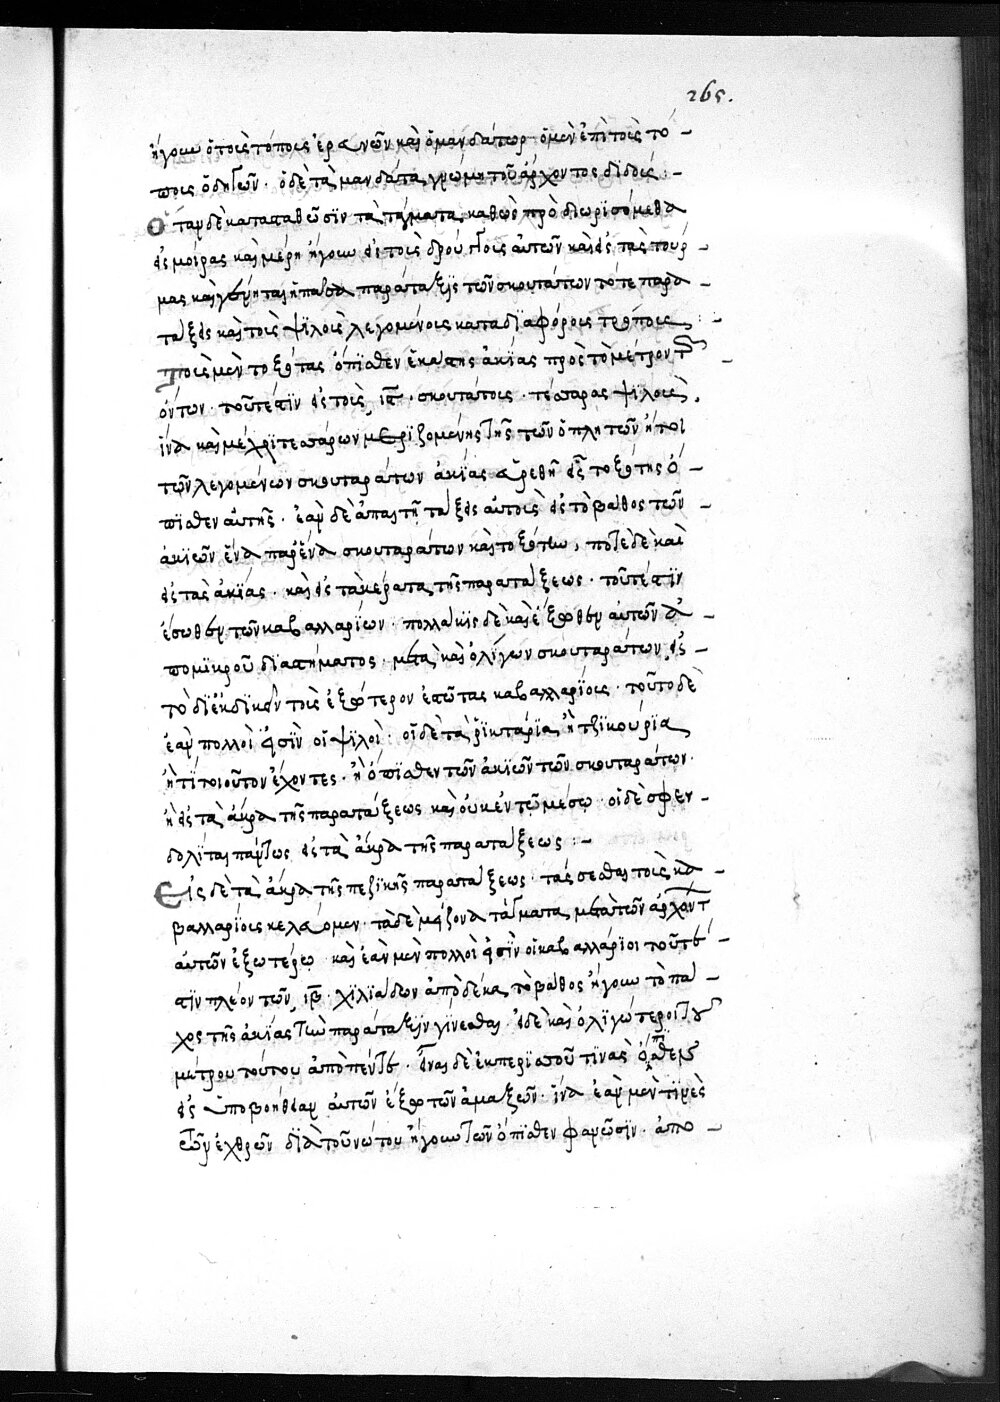 265.
ἤγουν ὁ τοὺς τόπους ἐρευνῶν καὶ ὁ μανδάτωρ· ὁ μὲν ἐπὶ τοὺς τό-
πους ὁδηγῶν· ὁ δὲ τὰ μανδάτα γνώμη τοῦ ἄρχοντος διδούς:-
Ὅταν δὲ καταπαθῶσϊν τὰ τάγματα καθὼς πρὸ διωρισόμεθα
εἰς μοίρας καὶ μέρη ἤγουν εἰς τοὺς δρούγγους αὐτῶν καὶ εἰς τὰς τούρ-
μας καὶ γένηται ἡ πᾶσα παράταξϊς τῶν σκουτάτων τότε παρα-
τάξεις καὶ τοὺς ψϊλοὺς λεγομένους κατὰ δϊαφόρους τρόπους
ποτὲ μὲν τοξότας ὄπϊσθεν ἑκάστης ἀκΐας πρὸς τὸ μέτρον τῶν
ὄντων· τουτέστϊν εἰς τοὺς ιϛ σκουτάτους· τέσσαρας ψϊλοὺς,
ἵνα καὶ μέχρϊ τεσσάρων μεριζομένης τῆς τῶν ὁπλητῶν ἤτοι
τῶν λεγομένων σκουταράτων ἀκΐας εὑρεθῆ εἷς τοξότης ὄ-
πϊσθεν αὐτῆς· ἐὰν δὲ ἀπαιτῆ τάξεις αὐτοὺς εἰς τὸ βάθος τῶν
ἀκϊῶν ἕνα παρ' ἕνα σκουταράτων καὶ τοξότην, ποτὲ δὲ καὶ
εἰς τὰς ἀκΐας· καὶ εἰς τὰ κέρατα τῆς παρατάξεως· τουτέστϊν
ἔσωθεν τῶν καβαλλαρΐων· πολλάκϊς δὲ καὶ ἔξωθεν αὐτῶν ἀ-
πο μϊκροῦ δϊαστήματος· μετὰ καὶ ὀλίγων σκουταράτων εἰς
τὸ δϊεκδϊκεῖν τοὺς ἐξώτερον ἑστῶτας καβαλλαρΐους· τοῦτο δὲ
ἐὰν πολλοὶ ὦσϊν οἱ ψϊλοί· οἱ δὲ τὰ ῥϊκτάρϊα ἢ τζϊκούρϊα
ἤ τϊ τοιοῦτον ἔχοντες· ἢ ὄπϊσθεν τῶν ἀκϊῶν τῶν σκουταράτων·
ἢ εἰς τὰ ἄκρα τῆς παρατάξεως καὶ οὐκ ἐν τῶ μέσω· οἱ δὲ σφεν-
δολίται πάντως εἰς τὰ ἄκρα τῆς παρατάξεως:-
Εἰς δὲ τὰ ἄκρα τῆς πεζϊκῆς παρατάξεως· τάσσεσθαι τοὺς κα-
βαλλαρΐους κελεύομεν· τὰ δὲ μείζονα τάγματα μετὰ τῶν ἀρχόντων
αὐτῶν ἐξωτέρω· καὶ ἐὰν μὲν πολλοὶ ὦσϊν οἱ καβαλλάρϊοι τουτέ-
στϊν πλέον τῶν ιβ χϊλϊάδων ἀπὸ δέκα τὸ βάθος ἤγουν τὸ πά-
χος τῆς ἀκΐας τὴν παράταξϊν γΐνεσθαι· εἰ δὲ καὶ ὀλϊγώτεροι τοῦ
μέτρου τούτου ἀπὸ πέντε· εἶναι δὲ ἐκ περισσοῦ τϊνὰς ὄπϊσθεν
εἰς ὑποβοήθειαν αὐτῶν ἔξω τῶν ἁμαξῶν· ἵνα ἐὰν μέν τϊνες
τῶν ἐχθρῶν δϊὰ τοῦ νώτου ἤγουν τῶν ὄπϊσθεν φανῶσϊν· ἀπο-